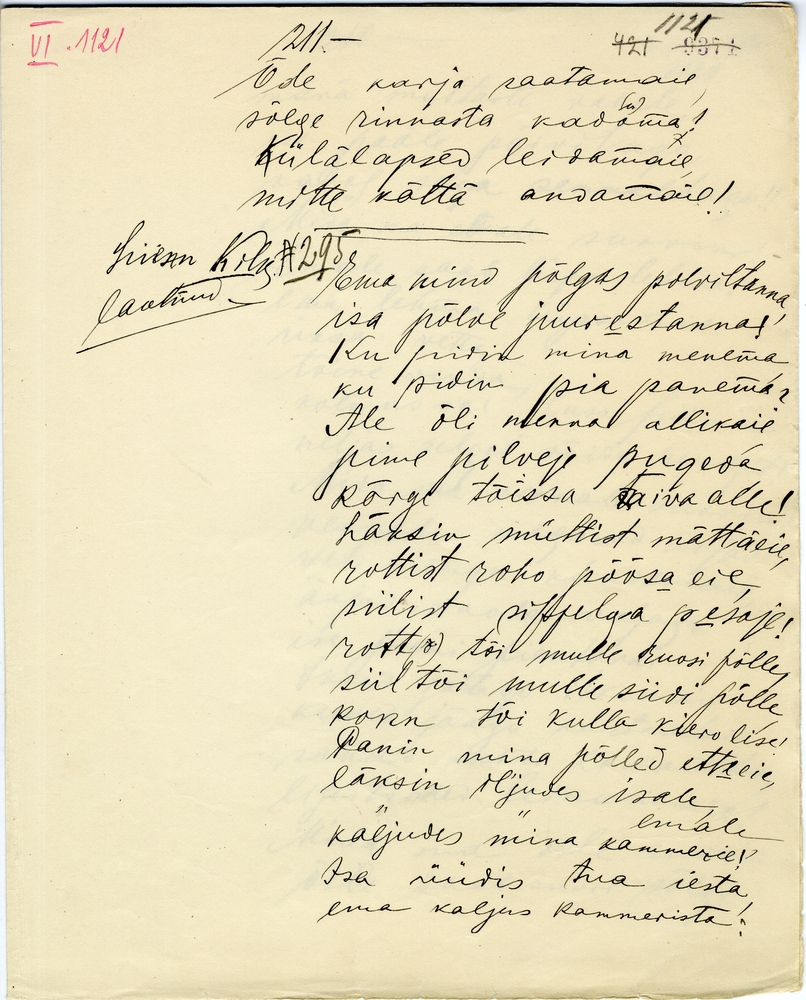 VI. 1121
211.—
1121
421 9371
Õde karja saatamaie,
sõlge rinnasta kadoma!
Külälapsed leidamaie,
mitte kättä andamaie!
№ 295
laulnud.
Ema mind põlgas polviltanna,
isa põlve juurestanna!
Ku pidin mina menema
ku pidin pia panema?
Ale õli menna allikaie
pime pilveje pugeda
kõrge tõissa taiva alle!
Läksin müttist mättäeie,
rottist roho põõsaeie,
siilist sippelga pesaje!
rott(x) tõi mulle ruosi põlle,
siil tõi mulle siidi põlle,
tõi kulla kiero lise!
Panin mina põlled etteeie,
läksin iljudes isale,
emale
käljudes mina kammerie!
Isa üüdis tua iesta,
ema kaljus kammerista!